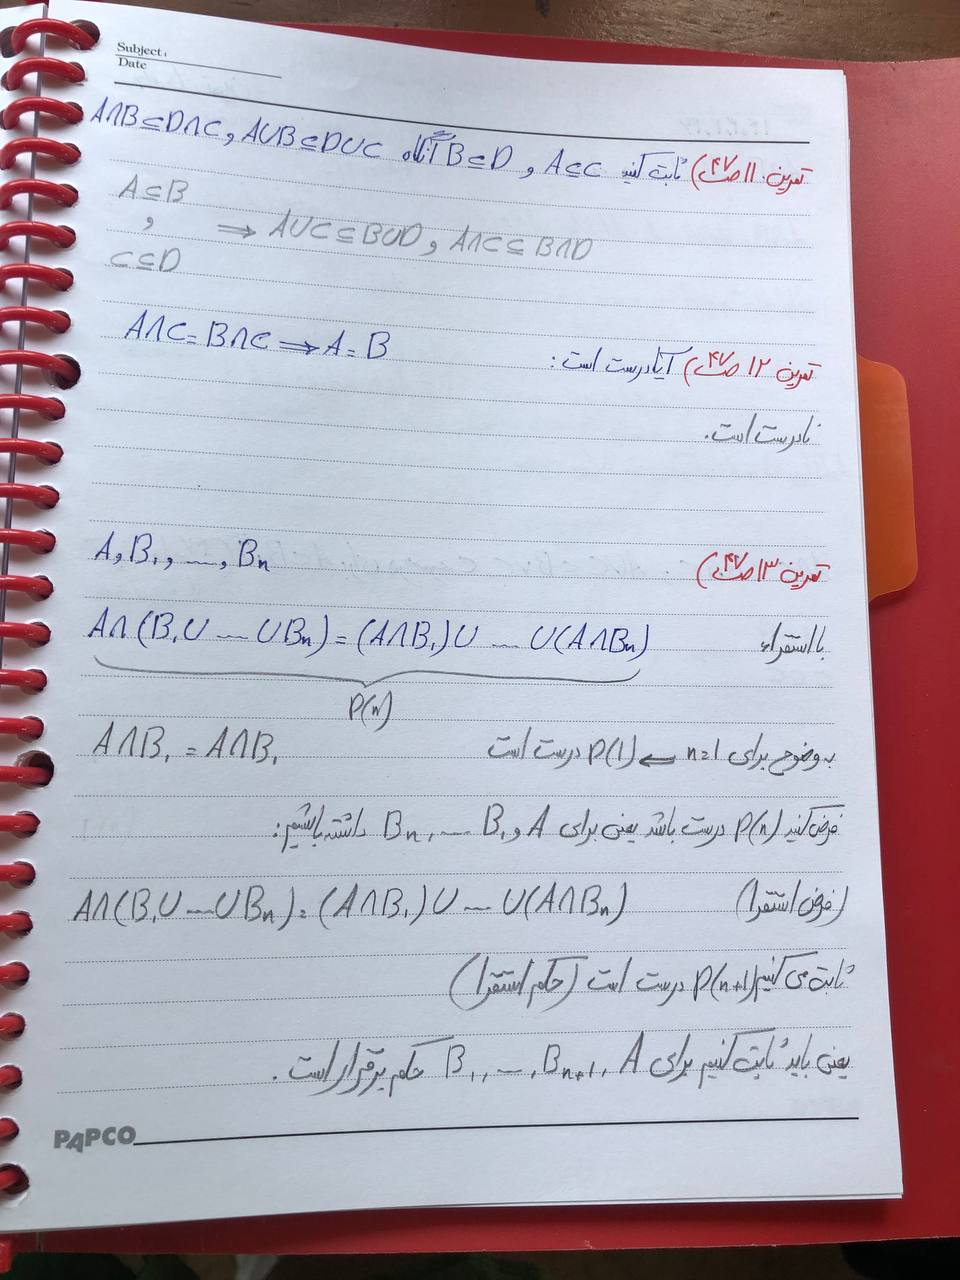 Subject:
Date
تمرین ۱۱ ص ۴۷) ثابت کنید A⊆C و B⊆D آنگاه A∪B⊆D∪C و A∩B⊆D∩C
A⊆B
و ⟹ A∪C⊆B∪D و A∩C⊆B∩D
C⊆D
تمرین ۱۲ ص ۴۷) آیا درست است: A∩C=B∩C⟹A=B
نادرست است.
تمرین ۱۳ ص ۴۷) A, B₁, ..., Bₙ
با استقراء A∩(B₁∪ ... ∪Bₙ)=(A∩B₁)∪ ... ∪(A∩Bₙ)
P(n)
به وضوح برای n=1 ← P(1) درست است A∩B₁=A∩B₁
فرض کنید P(n) درست باشد یعنی برای A و B₁, ..., Bₙ داشته باشیم:
(فرض استقرا) A∩(B₁∪ ... ∪Bₙ)=(A∩B₁)∪ ... ∪(A∩Bₙ)
ثابت می کنیم P(n+1) درست است (حکم استقرا)
یعنی باید ثابت کنیم برای A, B₁, ..., Bₙ₊₁ حکم برقرار است.
PAPCO